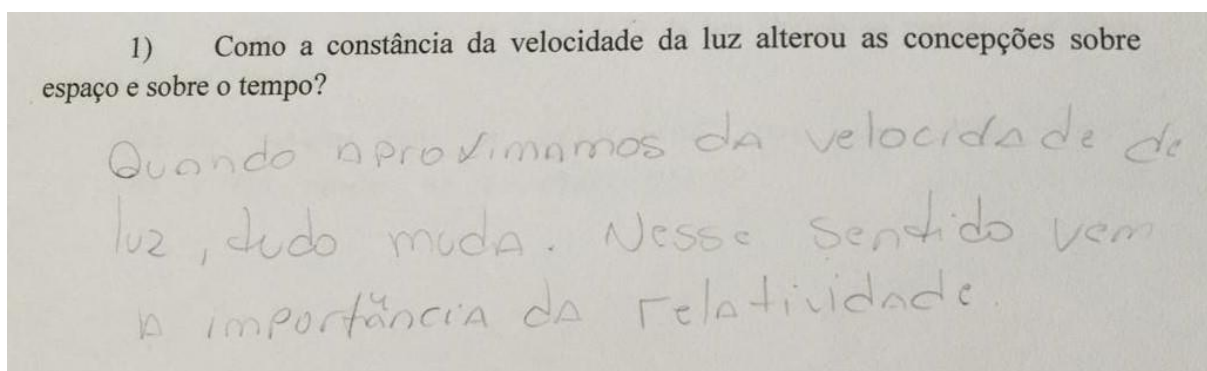 1) Como a constância da velocidade da luz alterou as concepções sobre
espaço e sobre o tempo?
Quando aproximamos da velocidade de
luz, tudo muda. Nesse sentido vem
a importância da relatividade.